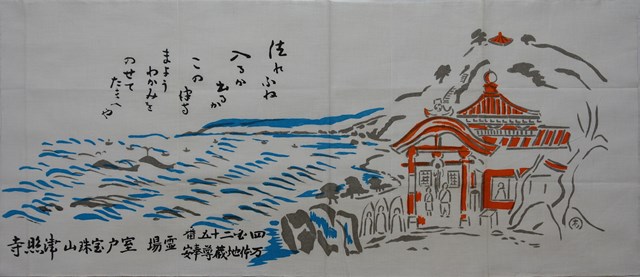 法のふね
入るか
出るか
この津寺
まよう
わかみを
のせて
たまへや
四国二十五番
万体地蔵尊奉安
霊場 室戸宝珠山 津照寺